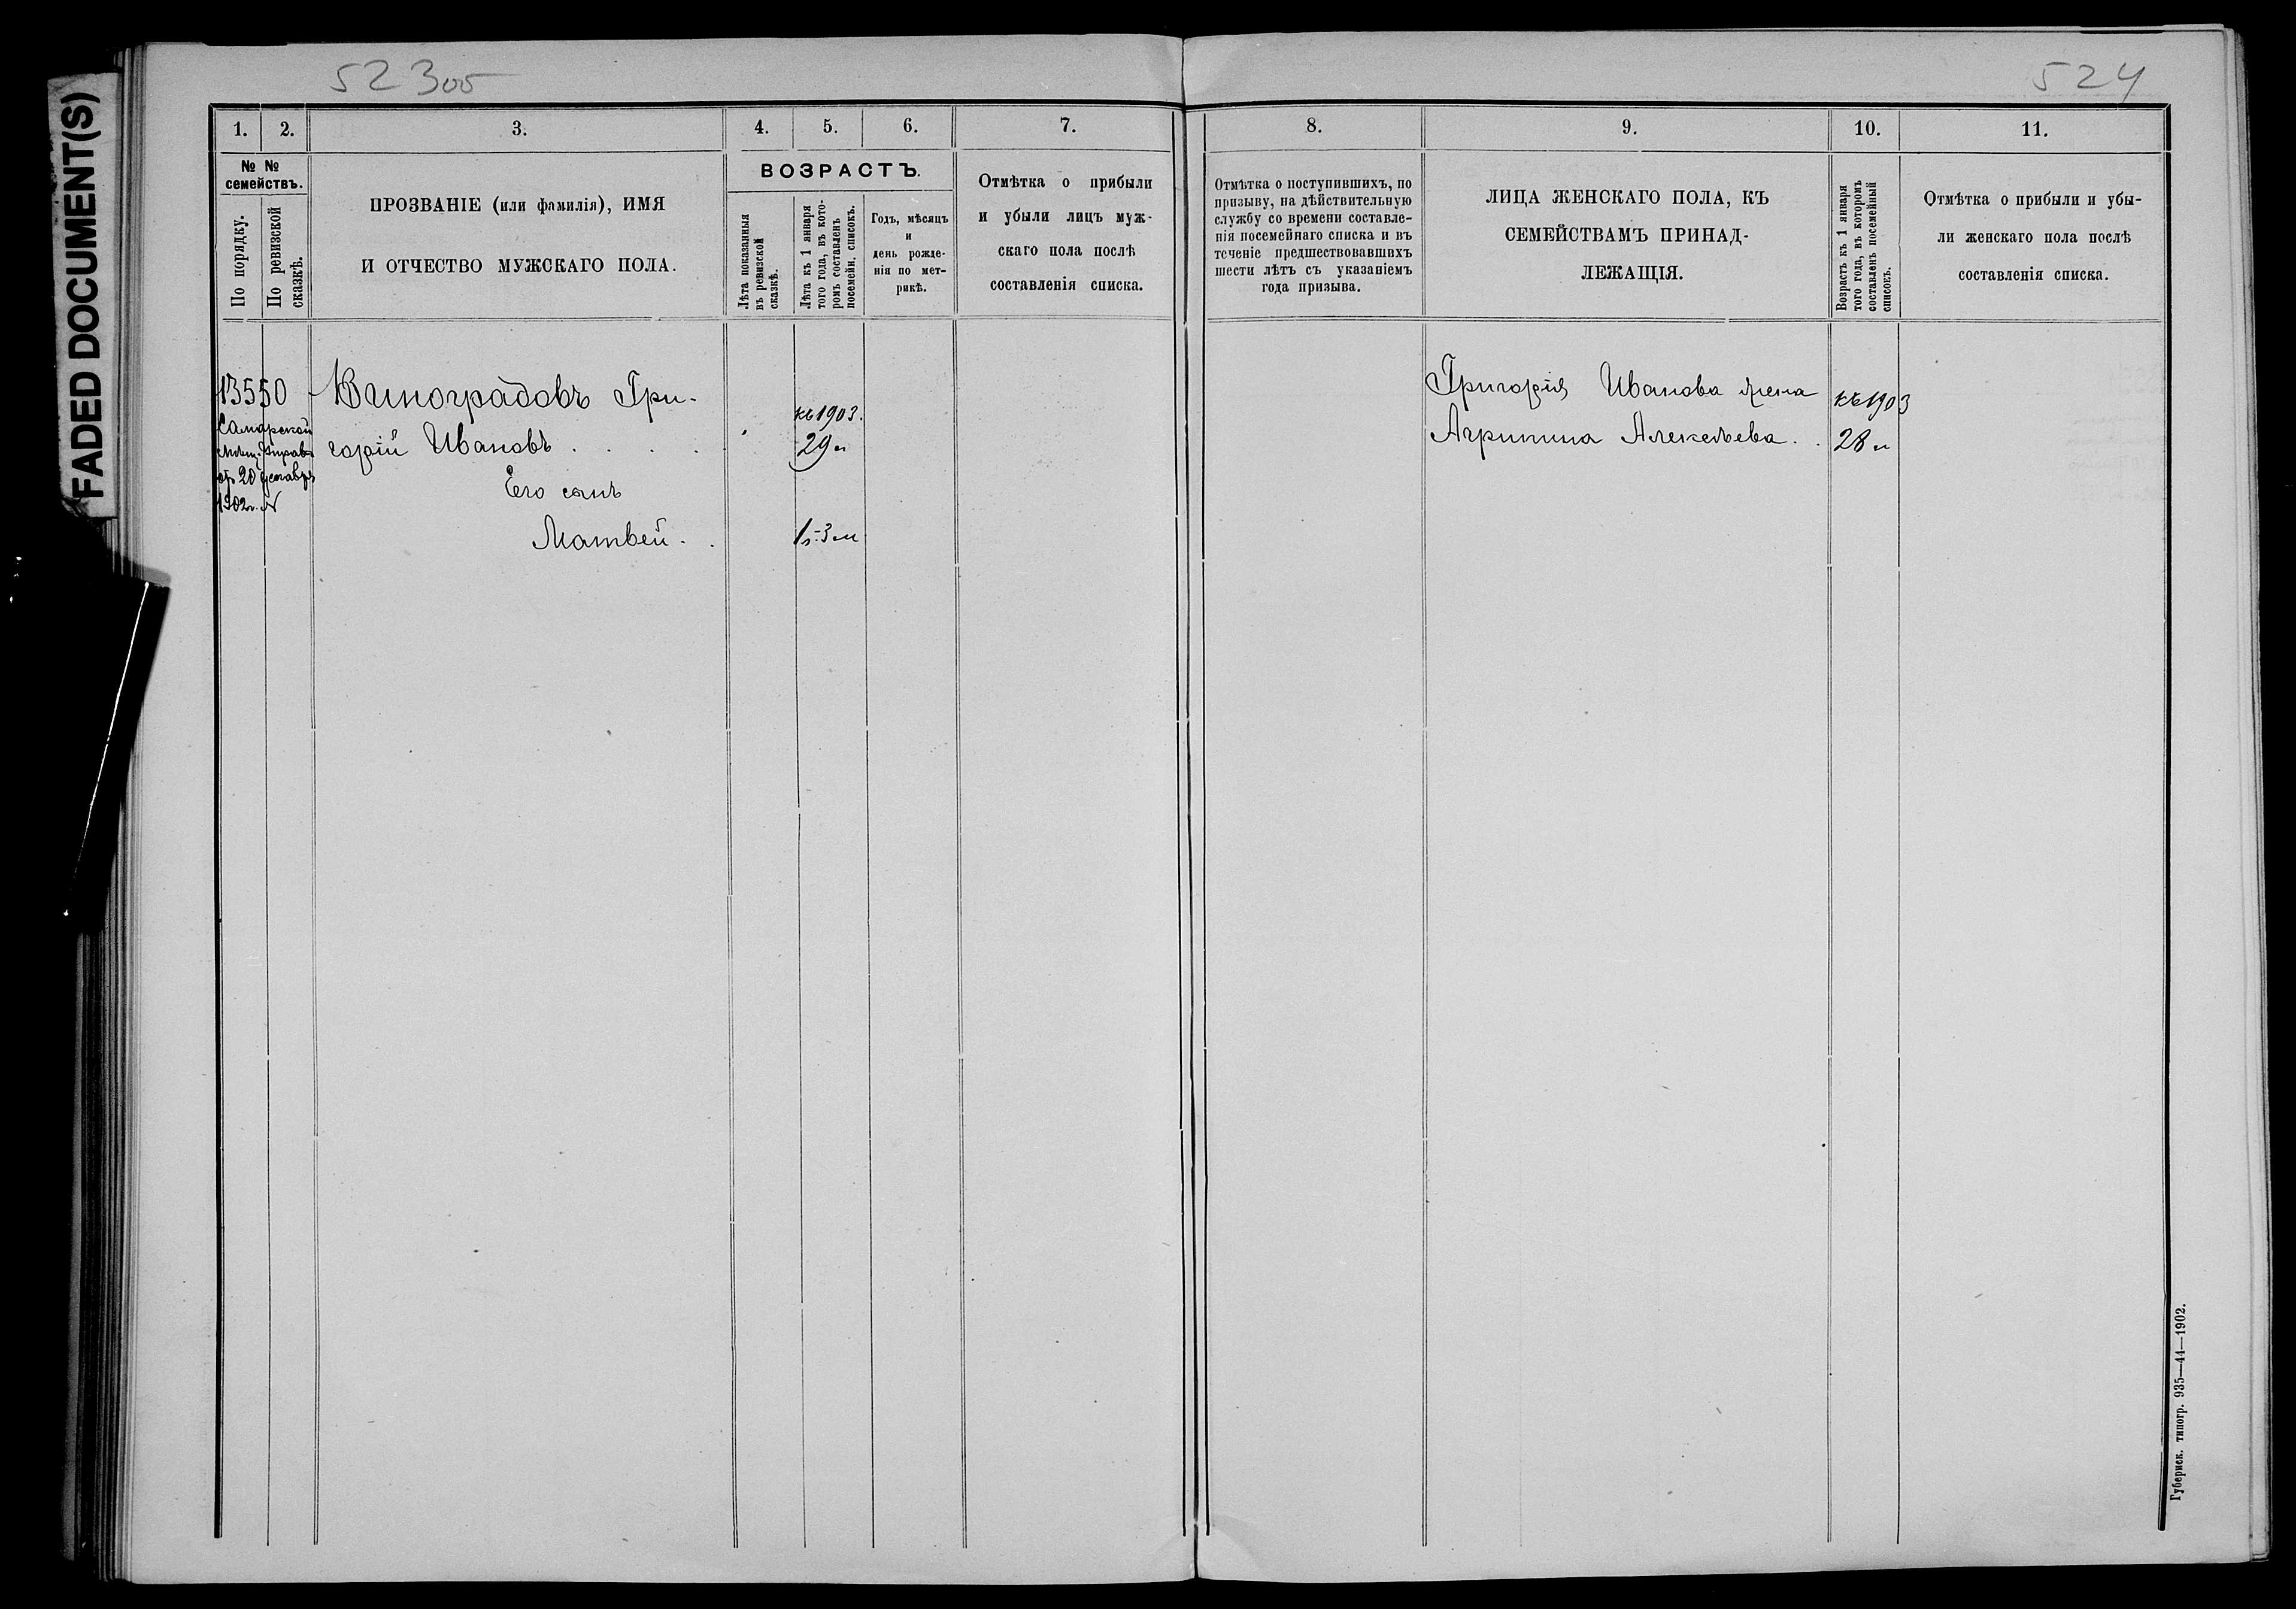 FADED DOCUMENT(S)
523об
524
1. 2. 3. 4. 5. 6. 7.
№ № семействъ.
По порядку.
По ревизской сказкѣ.
ПРОЗВАНІЕ (или фамилія), ИМЯ
И ОТЧЕСТВО МУЖСКАГО ПОЛА.
ВОЗРАСТЪ.
Лѣта показанныя
въ ревизской
сказкѣ.
Лѣта къ 1 января
того года, въ кото-
ромъ составленъ
посемейн. списокъ.
Годъ, мѣсяцъ
и
день рожде-
нія по мет-
рикѣ.
Отмѣтка о прибыли
и убыли лицъ муж-
скаго пола послѣ
составленія списка.
13550
Самарской
мѣщ. управ
отъ 20 декабря
1902 г. №
Виноградовъ Гри-
горій Ивановъ . . . .
къ 1903.
29 л
Его сынъ
Матвей . .
1 г. 3 м
8. 9. 10. 11.
Отмѣтка о поступившихъ, по
призыву, на дѣйствительную
службу со времени составле-
нія посемейнаго списка и въ
теченіе предшествовавшихъ
шести лѣтъ съ указаніемъ
года призыва.
ЛИЦА ЖЕНСКАГО ПОЛА, КЪ
СЕМЕЙСТВАМЪ ПРИНАД-
ЛЕЖАЩІЯ.
Возрастъ къ 1 января
того года, въ которомъ
составленъ посемейный
списокъ.
Отмѣтка о прибыли и убы-
ли женскаго пола послѣ
составленія списка.
Григорія Иванова жена
Агрипина Алексѣева . .
къ 1903
28 л
Губернск. типогр. 935—44—1902.